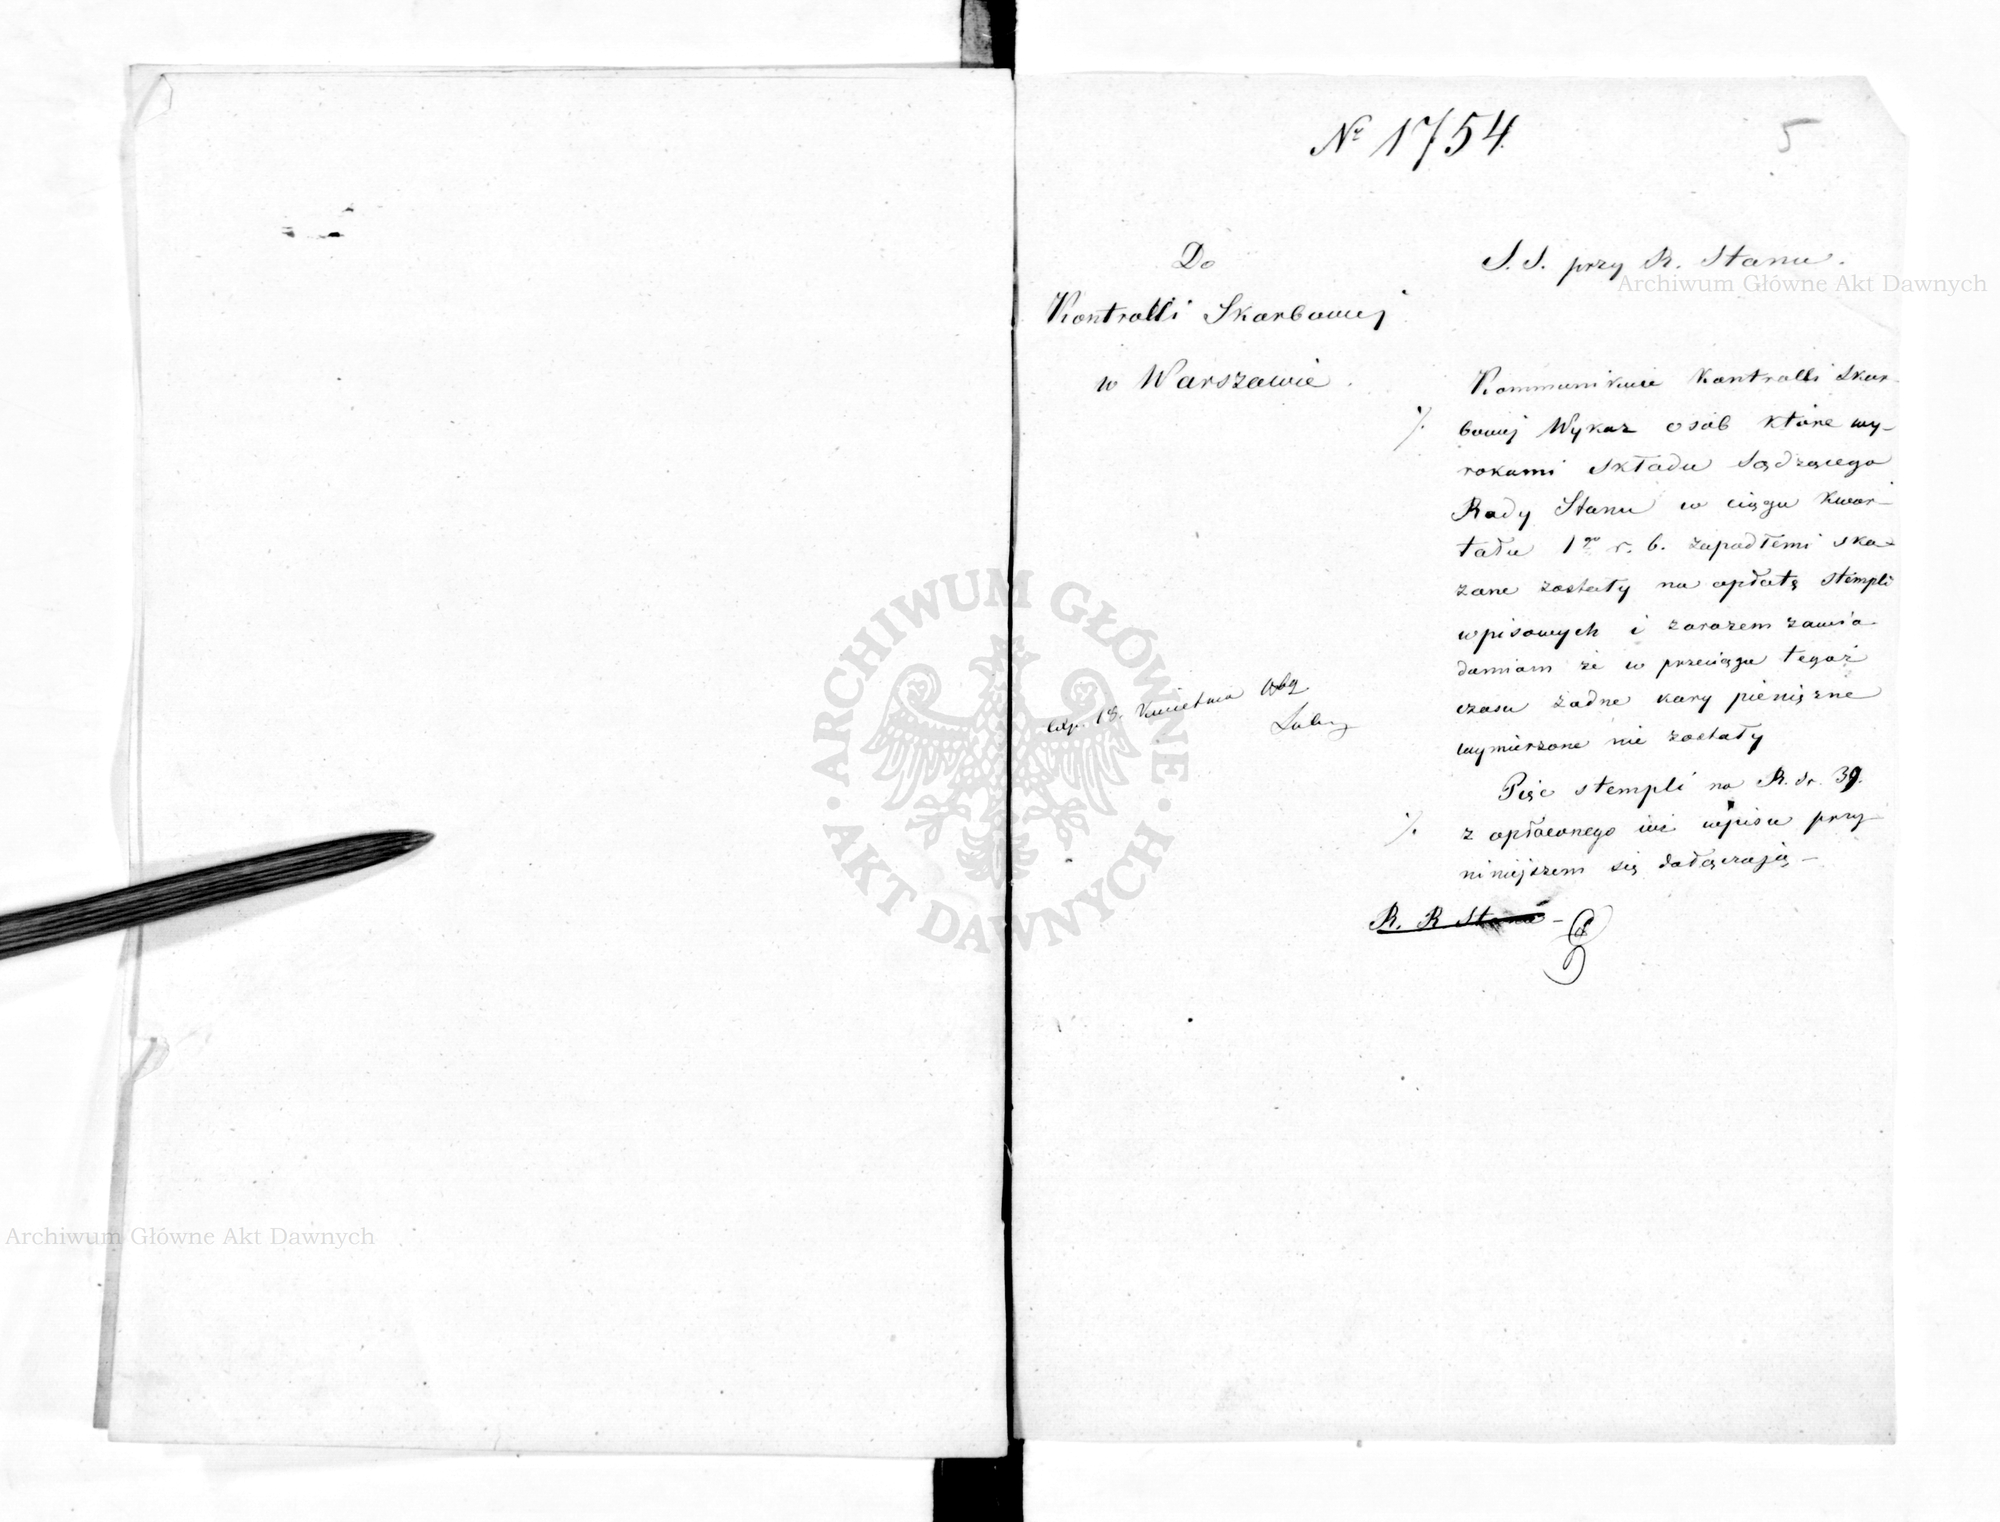 Nr 1754.
5
Do
Kontrolli Skarbowej
w Warszawie.
S. S. przy R. Stanu.
Kommunikuie Kontrolli Skar-
bowej Wykaz osób które wy-
rokami Składu Sądzącego
Rady Stanu w ciągu Kwar-
tału 1go r. b. zapadłemi ska-
zane zostały na opłatę stempli
wpisowych i zarazem zawia-
damiam że w przeciągu tegoż
czasu żadne kary pieniężne
wymierzone nie zostały
Pięć stempli na R. sr. 39.
z opłaconego iuż wpisu przy
niniejszem się dołączają –
R. R. Stanu –
18. Kwietnia
Archiwum Główne Akt Dawnych
ARCHIWUM GŁÓWNE
AKT DAWNYCH
Archiwum Główne Akt Dawnych